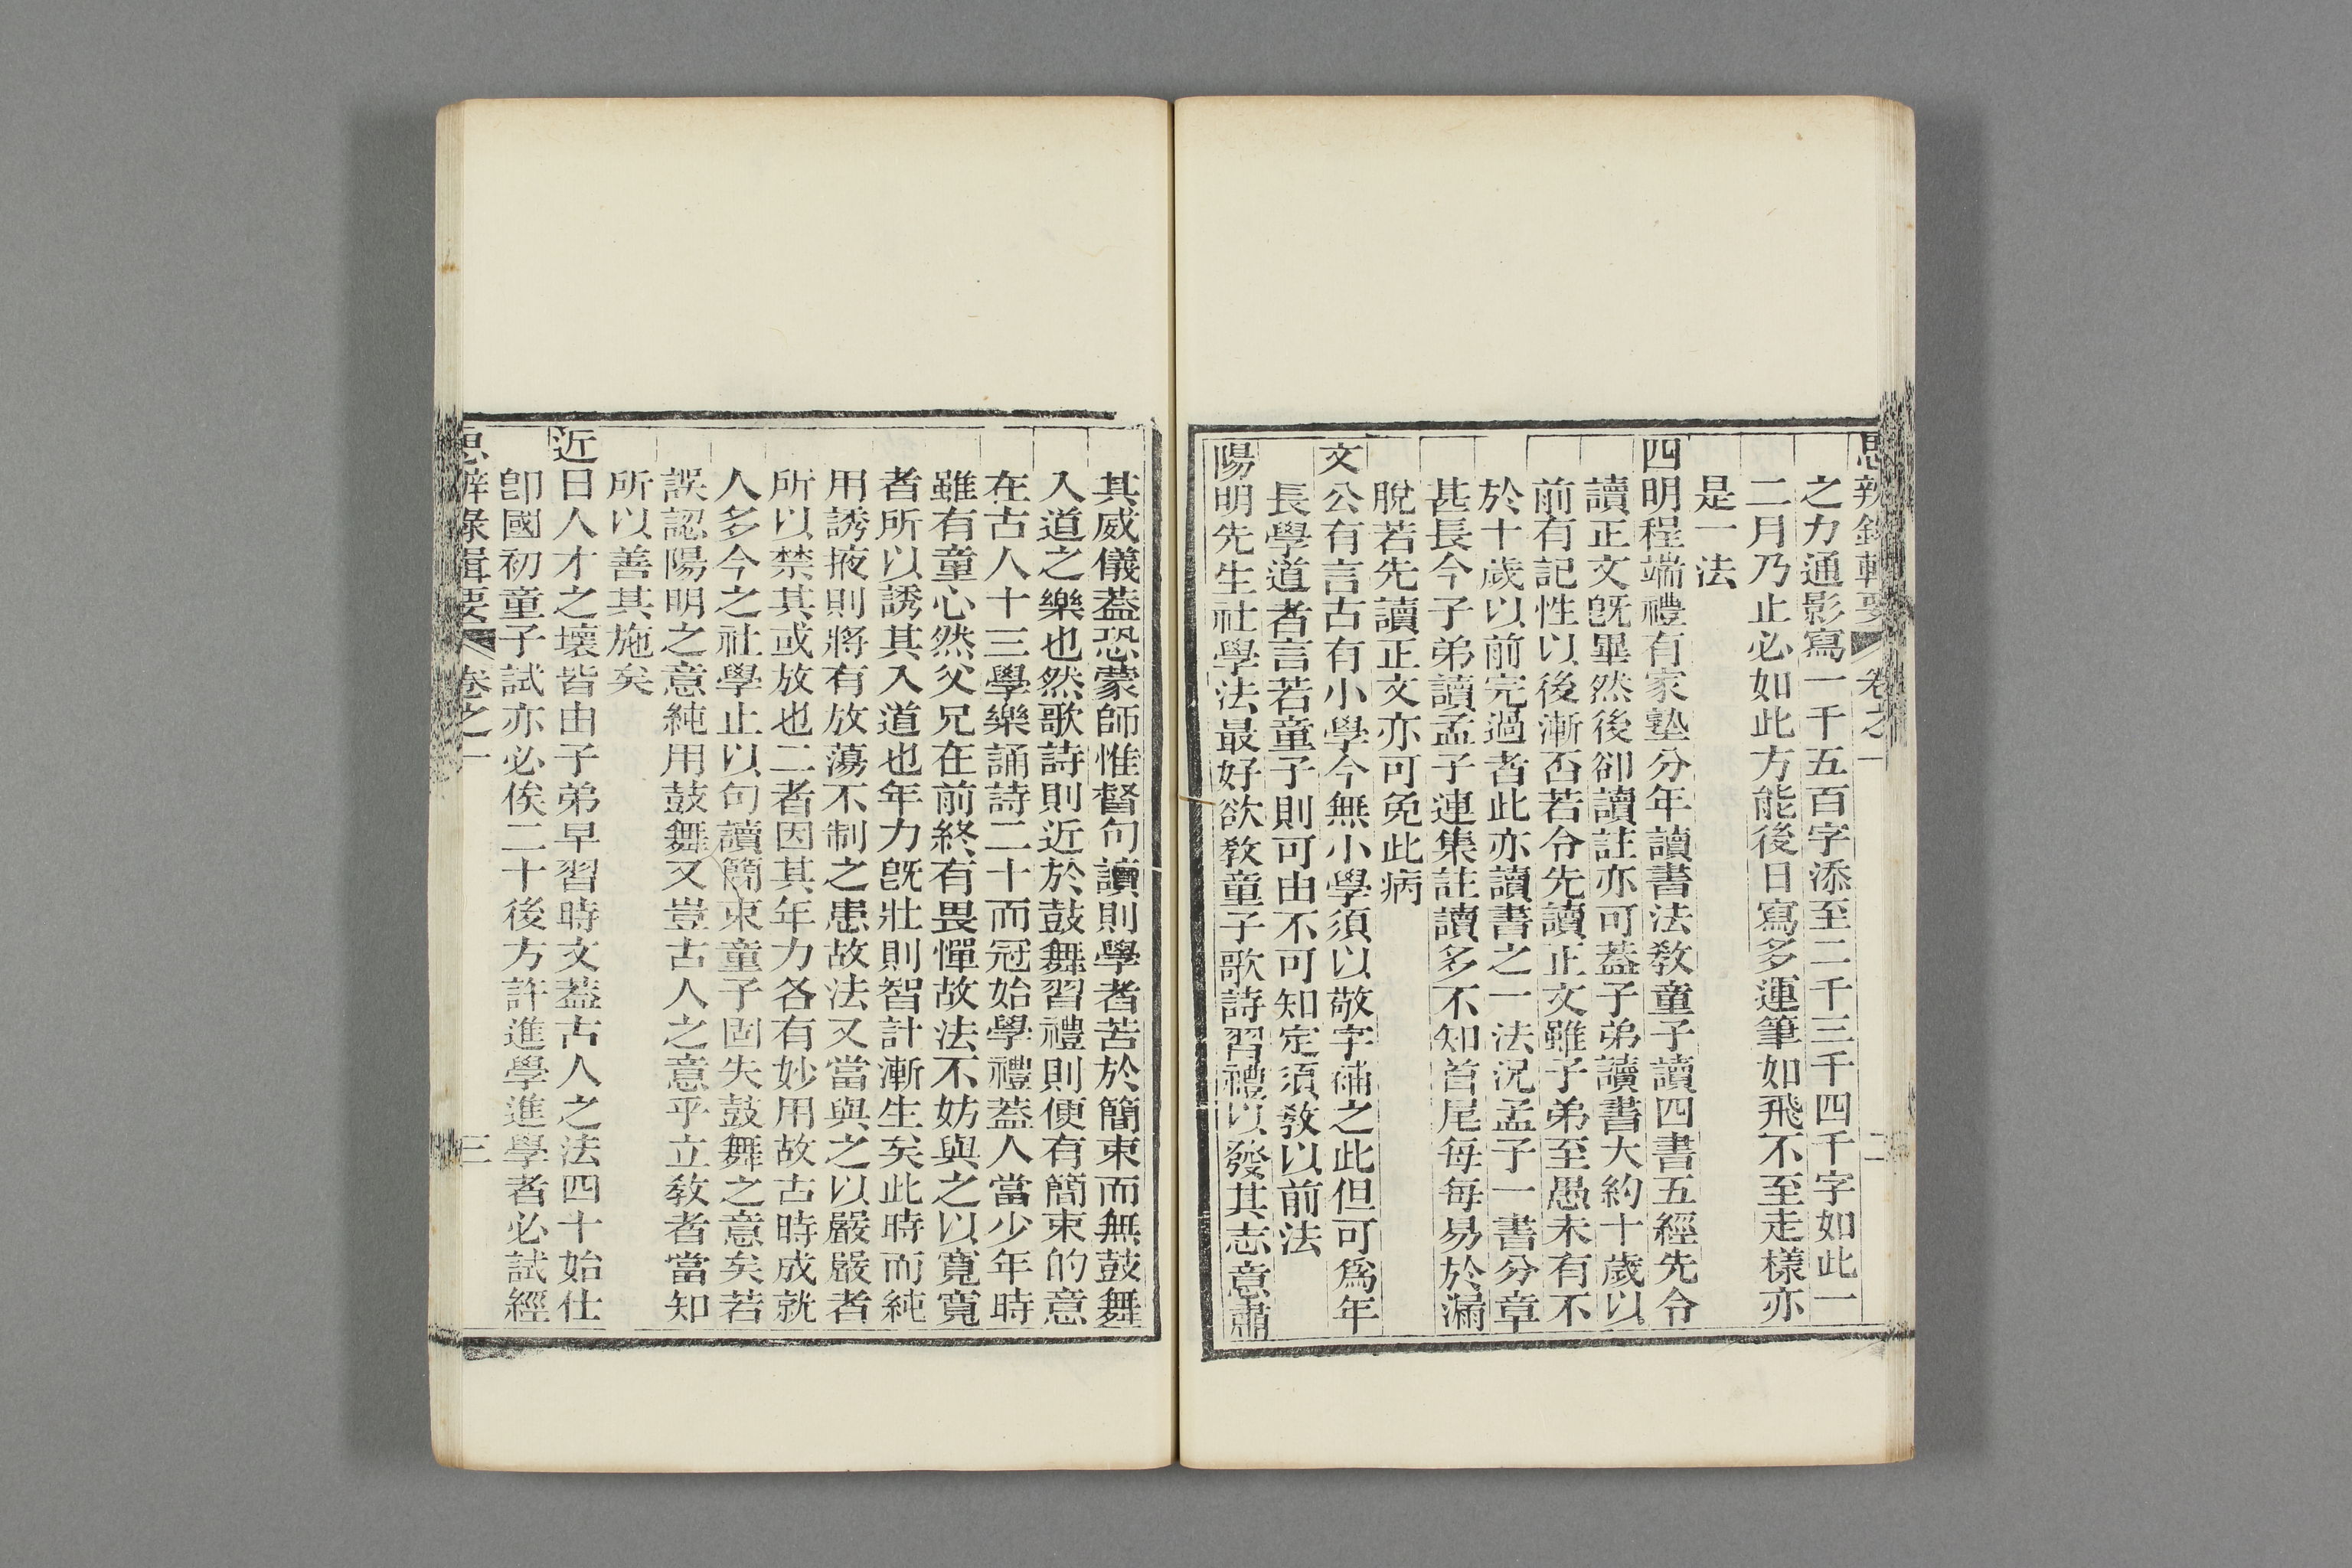 思辨錄輯要 卷之一 二
之力通影寫一千五百字添至二千三千四千字如此一
二月乃止必如此方能後日寫多運筆如飛不至走樣亦
是一法
四明程端禮有家塾分年讀書法敎童子讀四書五經先令
讀正文旣畢然後卻讀註亦可蓋子弟讀書大約十歲以
前有記性以後漸否若令先讀正文雖子弟至愚未有不
於十歲以前完過者此亦讀書之一法況孟子一書分章
甚長今子弟讀孟子連集註讀多不知首尾每每易於漏
脫若先讀正文亦可免此病
文公有言古有小學今無小學須以敬字補之此但可爲年
長學道者言若童子則可由不可知定須敎以前法
陽明先生社學法最好欲敎童子歌詩習禮以發其志意肅
其威儀蓋恐蒙師惟督句讀則學者苦於簡束而無鼓舞
入道之樂也然歌詩則近於鼓舞習禮則便有簡束的意
在古人十三學樂誦詩二十而冠始學禮蓋人當少年時
雖有童心然父兄在前終有畏憚故法不妨與之以寬寬
者所以誘其入道也年力旣壯則智計漸生矣此時而純
用誘掖則將有放蕩不制之患故法又當與之以嚴嚴者
所以禁其或放也二者因其年力各有妙用故古時成就
人多今之社學止以句讀簡束童子固失鼓舞之意矣若
誤認陽明之意純用鼓舞又豈古人之意乎立敎者當知
所以善其施矣
近日人才之壞皆由子弟早習時文蓋古人之法四十始仕
卽國初童子試亦必俟二十後方許進學進學者必試經
思辨錄輯要 卷之一 三